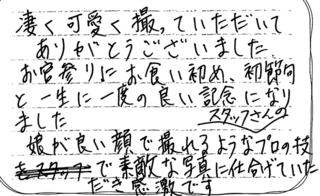 凄く可愛く撮っていただいて
ありがとうございました
お宮参りにお食い初め、初節句
と一生に一度の良い記念になり
ました スタッフさんの
娘が良い顔で撮れるようなプロの技
で素敵な写真に仕上げていた
だき感激です